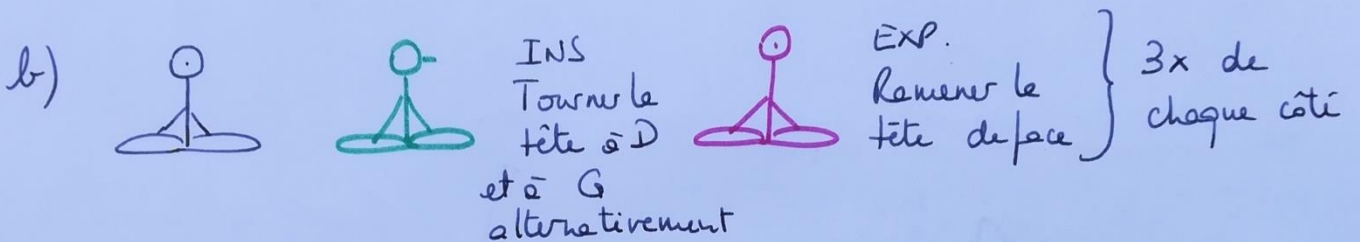 b)
INS
Tourner la
tête à D
et à G
alternativement
EXP.
Ramener la
tête de face
3x de
chaque côté